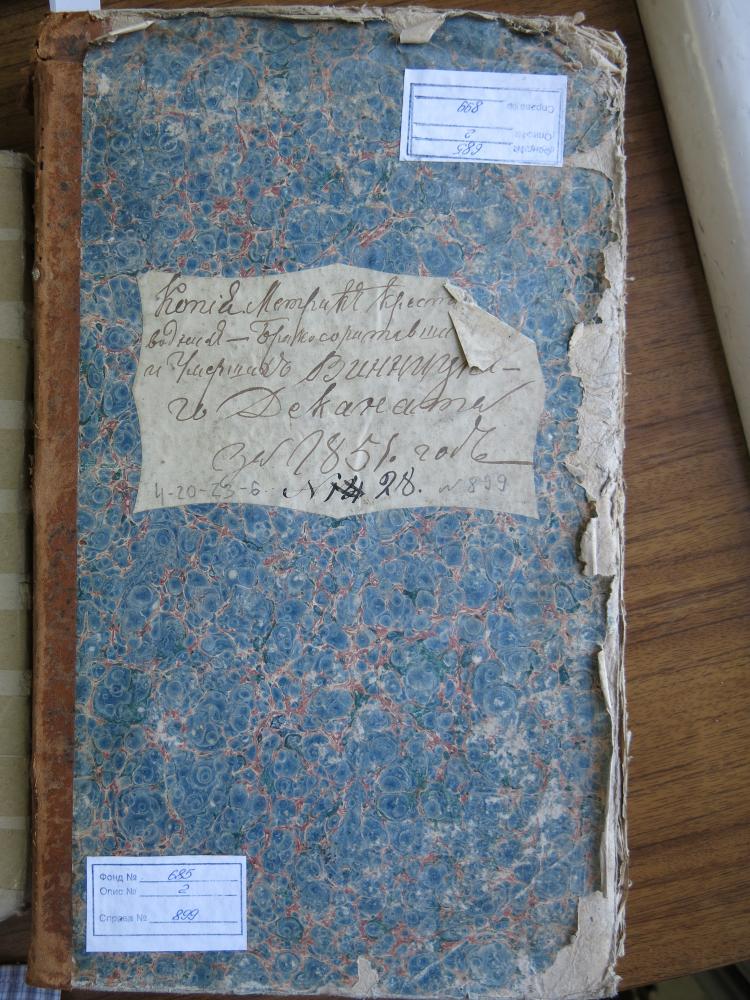 Фонд № 685
Опис № 2
Справа № 899
Копія Метрикъ Крест
водных — Бракосочетавши
и Умершихъ Винницка-
го Деканата
за 1851. годъ
4-20-23-6. № 28. № 899
Фонд № 685
Опис № 2
Справа № 899